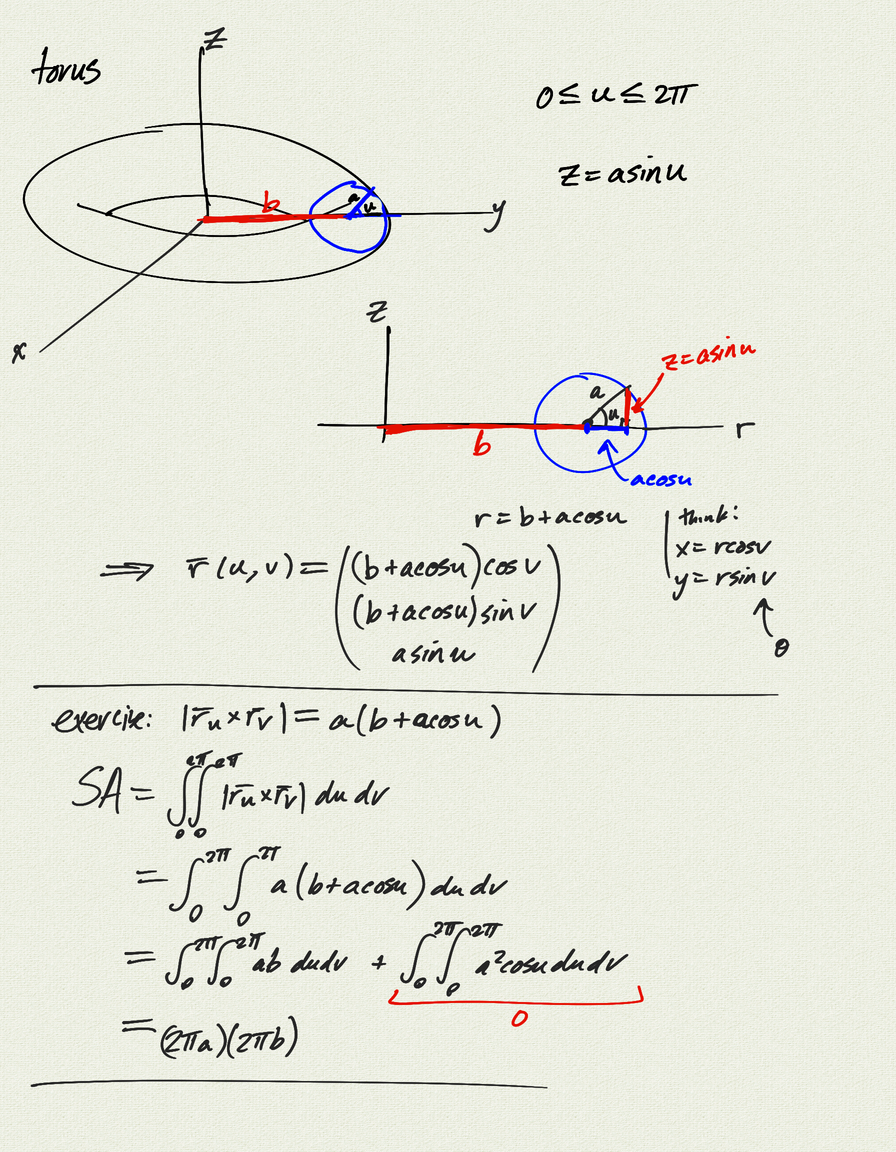 torus
z
0 ≤ u ≤ 2π
z = a sin u
b
a
u
y
x
z
z = a sin u
a
u
r
b
a cos u
r = b + a cos u
think:
x = r cos v
y = r sin v
θ
⇒ r̄(u, v) = ( (b + a cos u) cos v
(b + a cos u) sin v
a sin u )
exercise: |r̄u × r̄v| = a(b + a cos u)
SA = ∫₀^2π ∫₀^2π |r̄u × r̄v| du dv
= ∫₀^2π ∫₀^2π a(b + a cos u) du dv
= ∫₀^2π ∫₀^2π ab du dv + ∫₀^2π ∫₀^2π a² cos u du dv
0
= (2πa)(2πb)